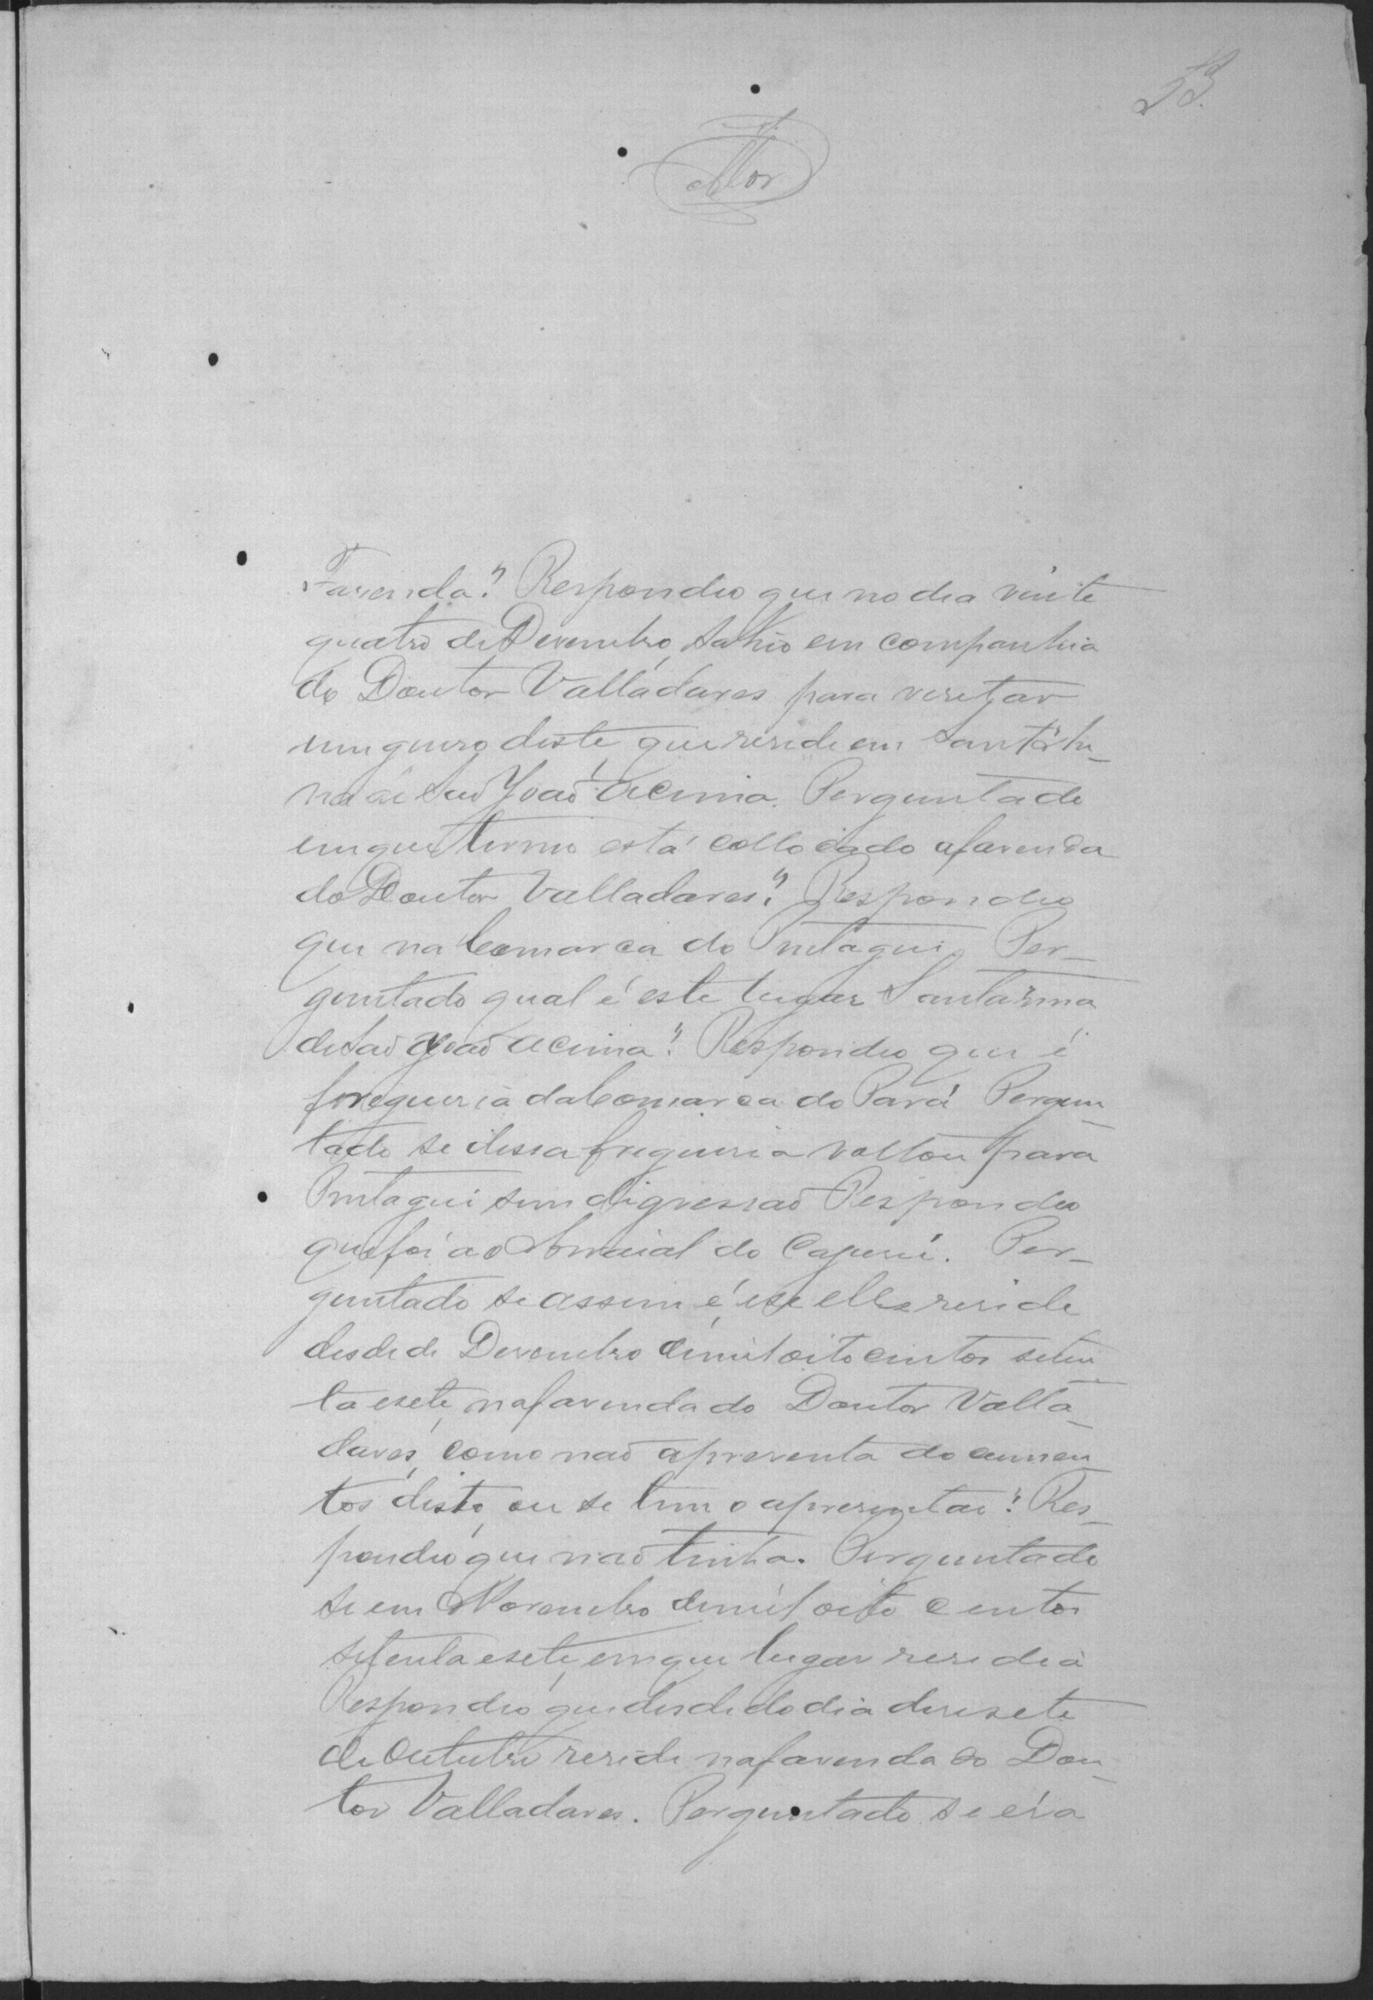 53.
Fasenda? Respondeo que no dia vinte
quatro de Desembro, sahio em companhia
do Doutor Valladares para visitar
um genro deste, que reside em Sant'An-
na de São João Acima. Perguntado
em que termo está collocado afasenda
do Doutor Valladares? Respondeo
que na Comarca do Pitangui. Per-
guntado qual é este lugar Santanna
de São João acima? Respondeo que é
freguesia da Comarca do Pará Pergun-
tado se dessa freguesia voltou para
Pitangui sem digressão Respondeo
que foi ao Arraial do Cajurú. Per-
guntado se assim é, e se elle reside
desde de Desembro demil oito centos seten-
ta esete, nafasenda do Doutor Valla-
dares, como não apresenta documen-
tos disto, ou se tem o apresentar? Res-
pondeo que não tinha. Perguntado
se em Novembro demil oito centos
setenta esete, em que lugar residia
Respondeo que desde do dia desesete
de Outubro reside nafasenda do Dou-
tor Valladares. Perguntado se era